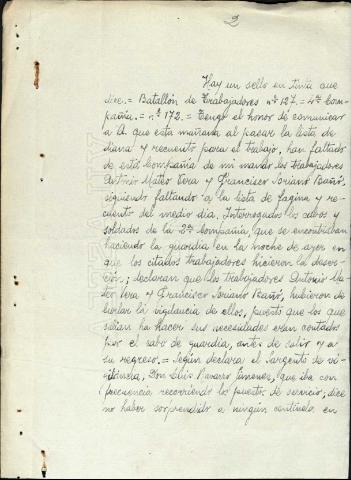 2
Hay un sello en tinta que
dice.= Batallón de Trabajadores nº 127.= 4ª Com-
pañía.= nº 172.= Tengo el honor de comunicar
a V. que esta mañana al pasar la lista de
diana y recuento para el trabajo, han faltado
de esta Compañía de mi mando los trabajadores
Antonio Mateo Vera y Francisco Soriano Bañó,
siguiendo faltando a la lista de fagina y re-
cuento del medio día. Interrogados los cabos y
soldados de la 2ª Compañía, que se encontraban
haciendo la guardia en la noche de ayer en
que los citados trabajadores hicieron la deser-
ción; declaran que los trabajadores Antonio Ma-
teo Vera y Francisco Soriano Bañó, hubieron de
burlar la vigilancia de ellos, puesto que los que
salían ha hacer sus necesidades eran contados
por el cabo de guardia, antes de salir y a
su regreso.= Según declara el Sargento de vi-
gilancia, Don Luis Navarro Jimenez, que iba con
frecuencia recorriendo los puestos de servicio; dice
no haber sorprendido a ningún centinela en